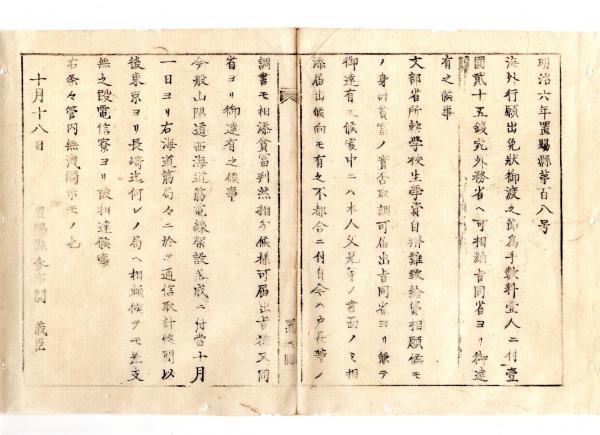 明治六年置賜縣第百八号
海外行願出免狀御渡之節為手數料壹人ニ付壹
圓貳十五錢宛外務省ヘ可相納旨同省ヨリ御達
有之候事
文部省所轄學校生學資自辨難致給貸相願候モ
ノ身計貧富ノ實否取調可届出旨同省ヨリ兼テ
御達有之候處中ニハ本人父兄等ノ書面ノミ相
添届出候向モ有之不都合ニ付自今ハ戸長等ノ
調書モ相添貧富判然相分候様可届出旨猶又同
省ヨリ御達有之候事
今般山陽道西海道筋電線架設落成ニ付當十月
一日ヨリ右海道筋局々ニ於テ通信取計候間以
後東京ヨリ長崎迄何レノ局ヘ相頼候テモ差支
無之段電信寮ヨリ被相達候事
右条々管内無洩觸示モノ也
十月十八日
置賜縣参事関 義臣
置賜縣